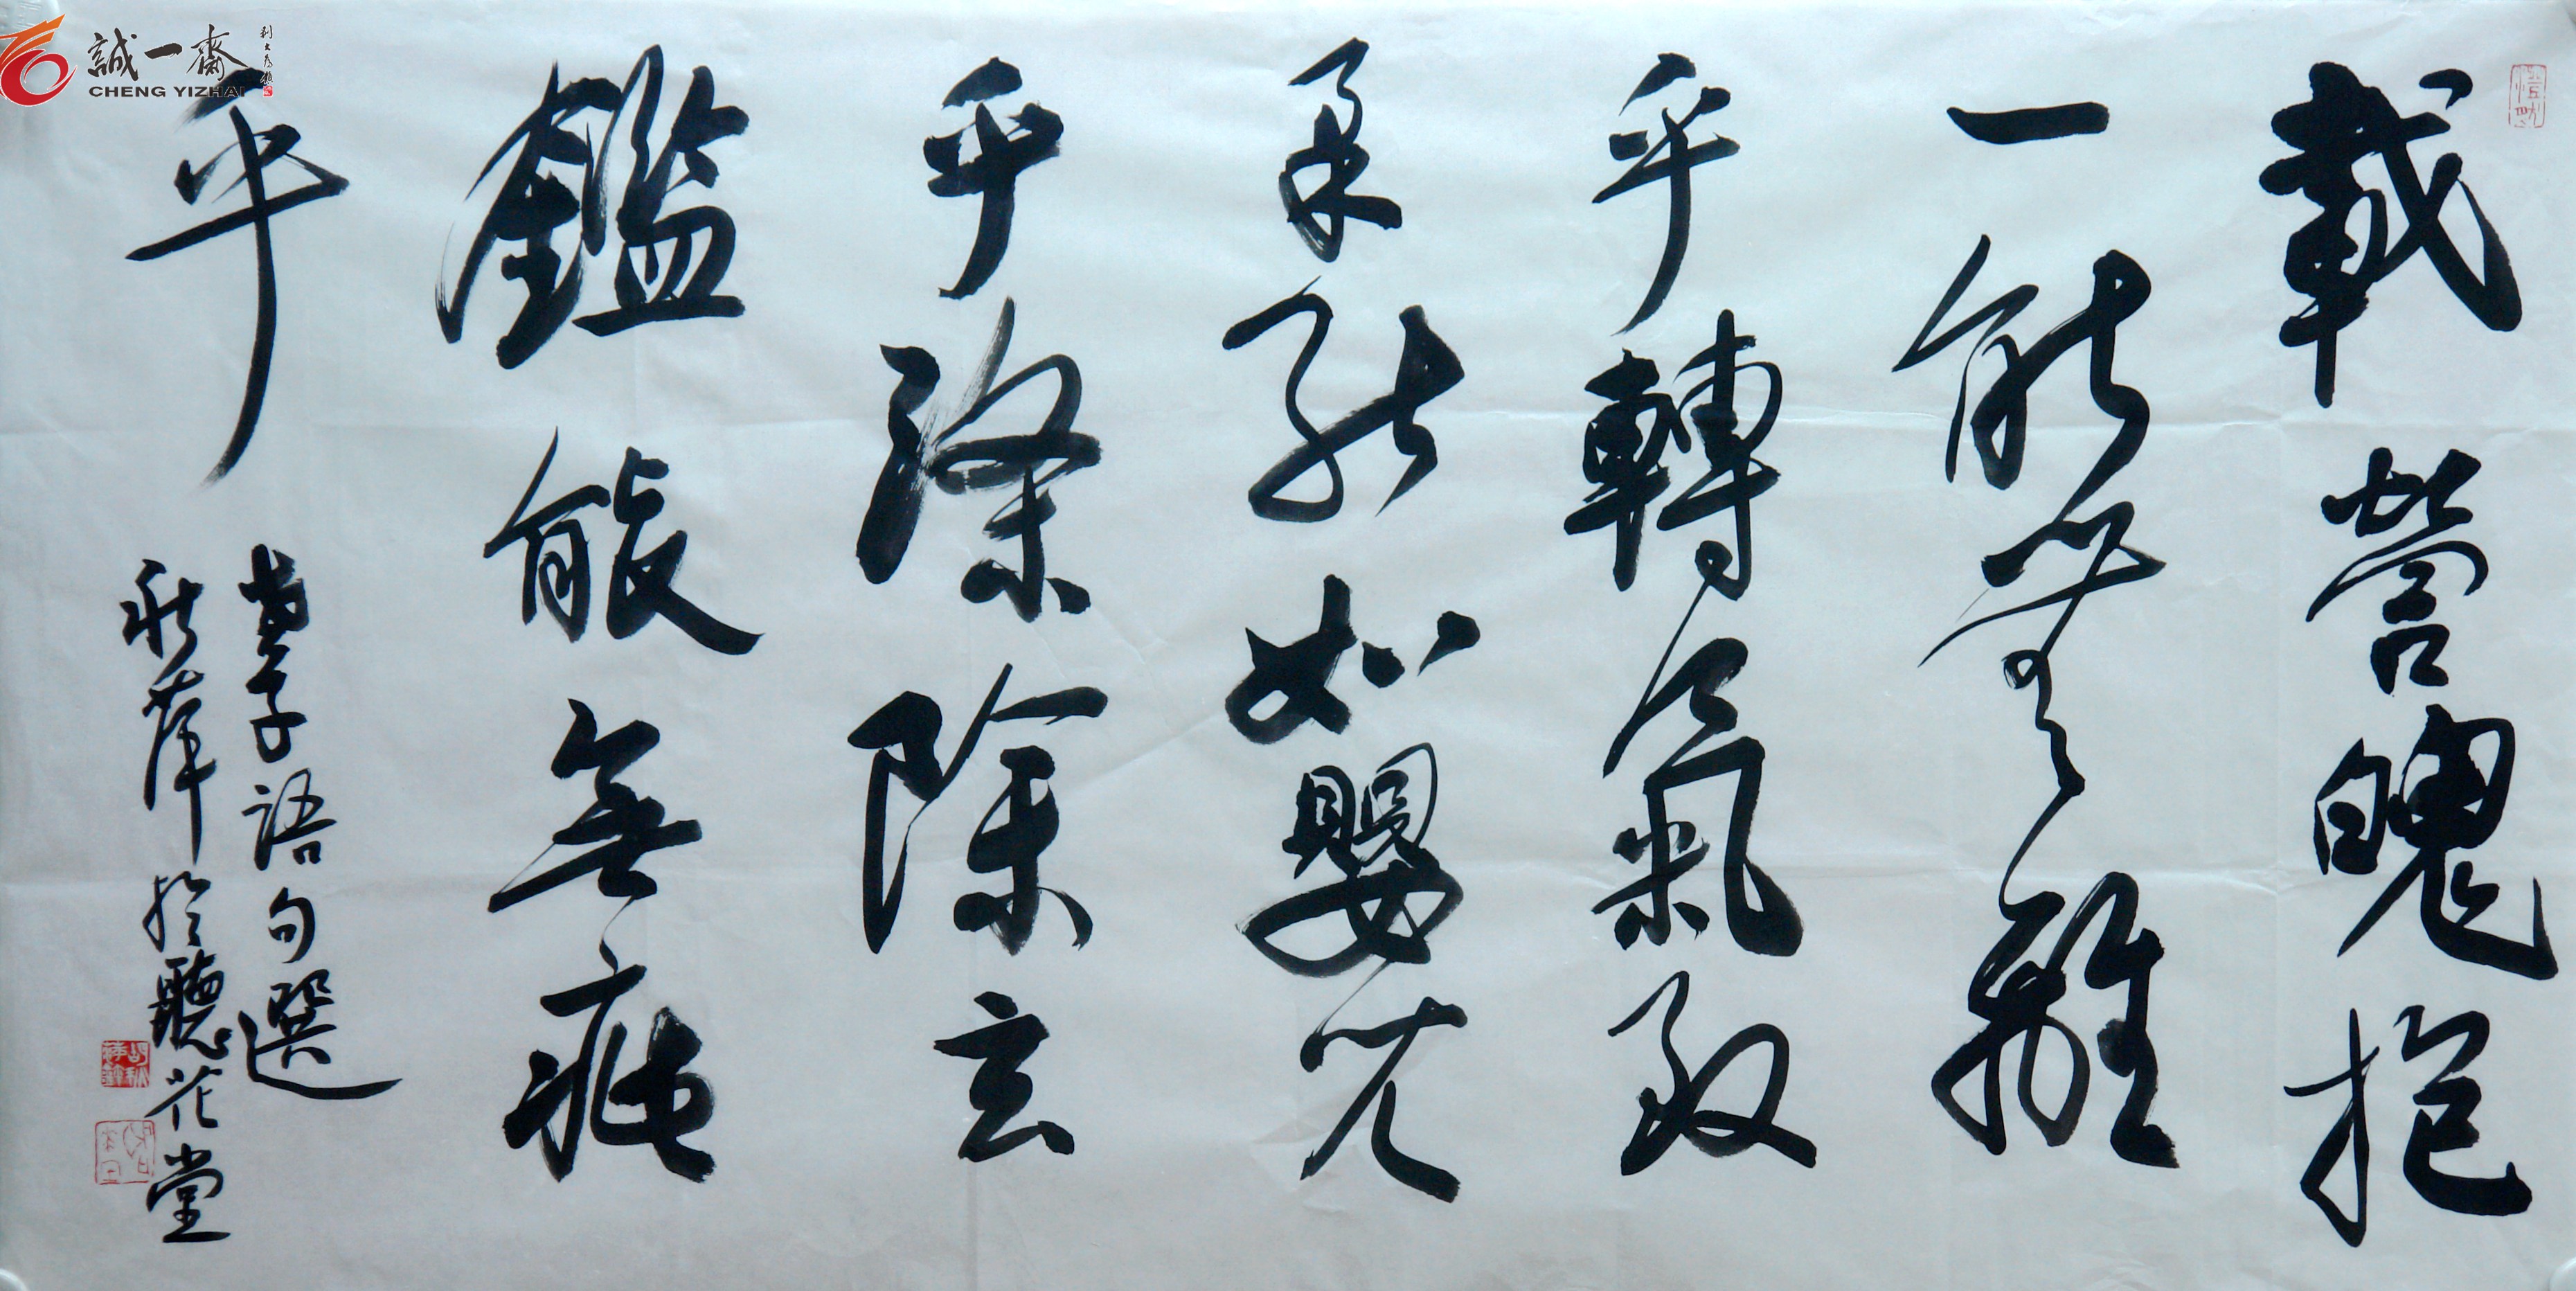 載營魄抱
一能無離
乎轉氣致
柔能如嬰兒
乎滌除玄
鑑能無疵
乎
莊子語句選
秋萍於聽花堂
誠一齋
CHENG YIZHAI